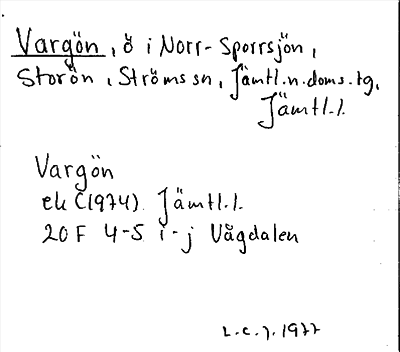 Vargön, ö i Norr-Sporrsjön,
Storön, Ströms sn, Jämtl.n.doms.tg,
Jämtl.l.
Vargön
ek C(1974) Jämtl.l.
20F 4-5 i-j Vågdalen
L.C.J. 1977